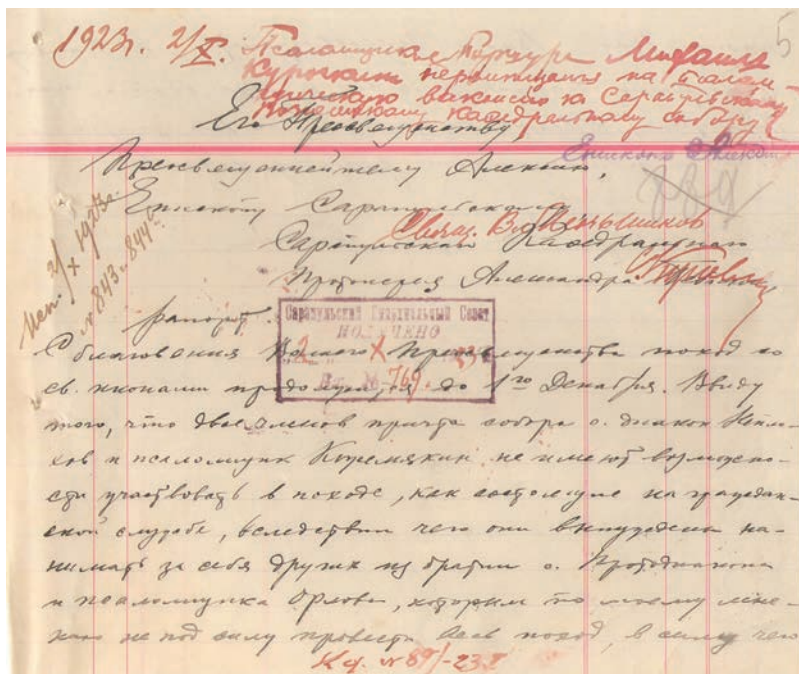 5
1923г. 2/X. Псаломщик Михаил
Курочкин перемещается на псалом-
щическую вакансию к Сарапульскому
Вознесенскому Кафедральному собору
Его Преосвященству,
Епископ Алексий
Преосвященнейшему Алексию,
Епископу Сарапульскому
Свящ. В. Меньшиков
Сарапульского Кафедрального
Протоиерея Александра
Исп. 2/X 1923г.
№ 843 и 844
рапорт.
Сарапульский Епархиальный Совет
ПОЛУЧЕНО
2 X 23
Вх. № 769.
С благовения Вашего Преосвященства поход со
св. иконами продолжится до 1го Декабря. Ввиду
того, что двое членов причта собора о. диакон
и псаломщик не имеют возможно-
сти участвовать в походе, как состоящие на граждан-
ской службе, вследствии чего они вынуждены на-
нимать за себя других из братии о. Протодиакона
и псаломщика Орлова, которым по моему мне-
нию не под силу провести весь поход, в силу чего
№ 89/-23